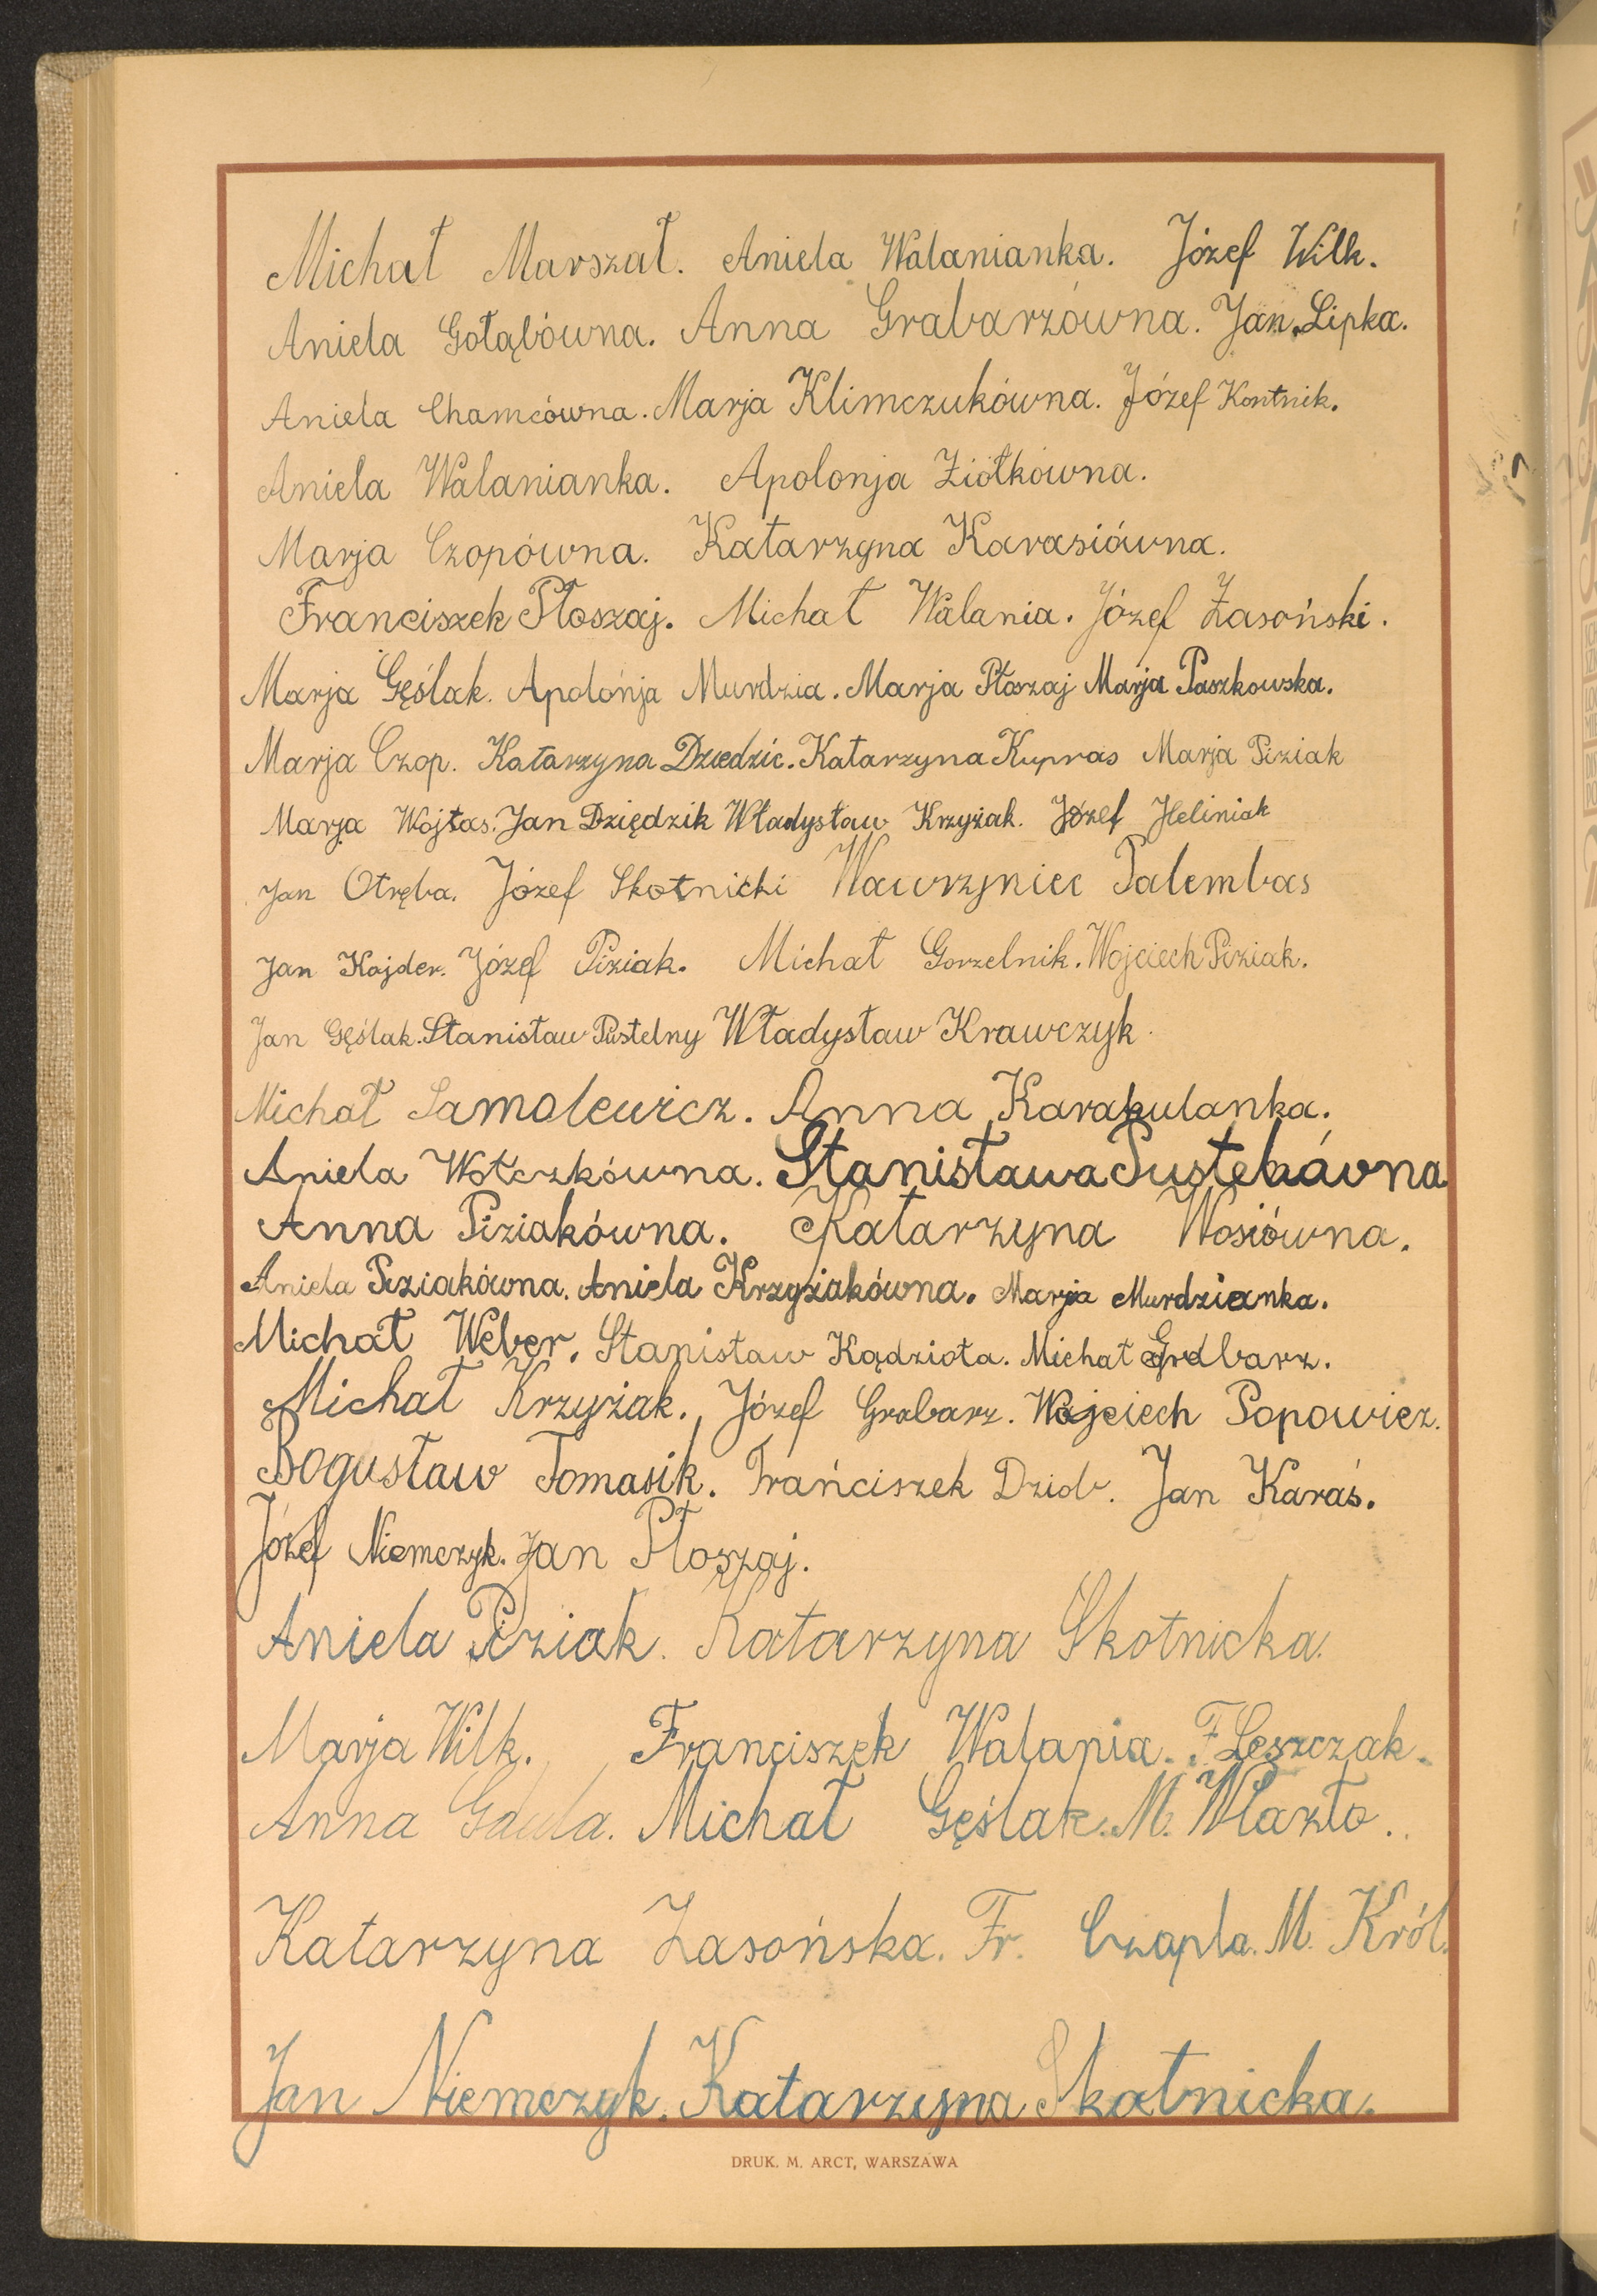 Michał Marszał. Aniela Walanianka. Józef Wilk.
Aniela Gołąbówna. Anna Grabarzówna. Jan Lipka.
Aniela Chamcówna. Marja Klimczukówna. Józef Kontnik.
Aniela Walanianka. Apolonja Ziółkówna.
Marja Czopówna. Katarzyna Karasiówna.
Franciszek Płoszaj. Michał Walania. Józef Zasoński.
Marja Gęślak. Apolonja Murdzia. Marja Płoszaj Marja Paszkowska.
Marja Czop. Katarzyna Dziedzic. Katarzyna Kupras Marja Piziak
Marja Wojtas. Jan Dziędzik Władysław Krzyżak. Józef Heliniak
Jan Otręba. Józef Skotnicki Wawrzyniec Palembas
Jan Kojder. Józef Piziak. Michał Gorzelnik. Wojciech Piziak.
Jan Gęślak. Stanisław Pustelny Władysław Krawczyk.
Michał Samolewicz. Anna Karakulanka.
Aniela Wołczkówna. Stanisława
Anna Piziakówna. Katarzyna Wosiówna.
Aniela Piziakówna. Aniela Krzyżakówna. Marja Murdzianka.
Michał Weber. Stanisław Kądzioła. Michał Grabarz.
Michał Krzyżak. Józef Grabarz. Wojciech Popowicz.
Bogusław Tomasik. Frańciszek Dziob. Jan Karaś.
Józef Niemczyk. Jan Płoszaj.
Aniela Piziak. Katarzyna Skotnicka.
Marja Wilk. Franciszek Walania. F. Leszczak.
Anna Gdula. Michał Gęślak. M. Wlazło.
Katarzyna Zasońska. Fr. Czapla. M. Król.
Jan Niemczyk. Katarzyna Skotnicka.
DRUK. M. ARCT, WARSZAWA